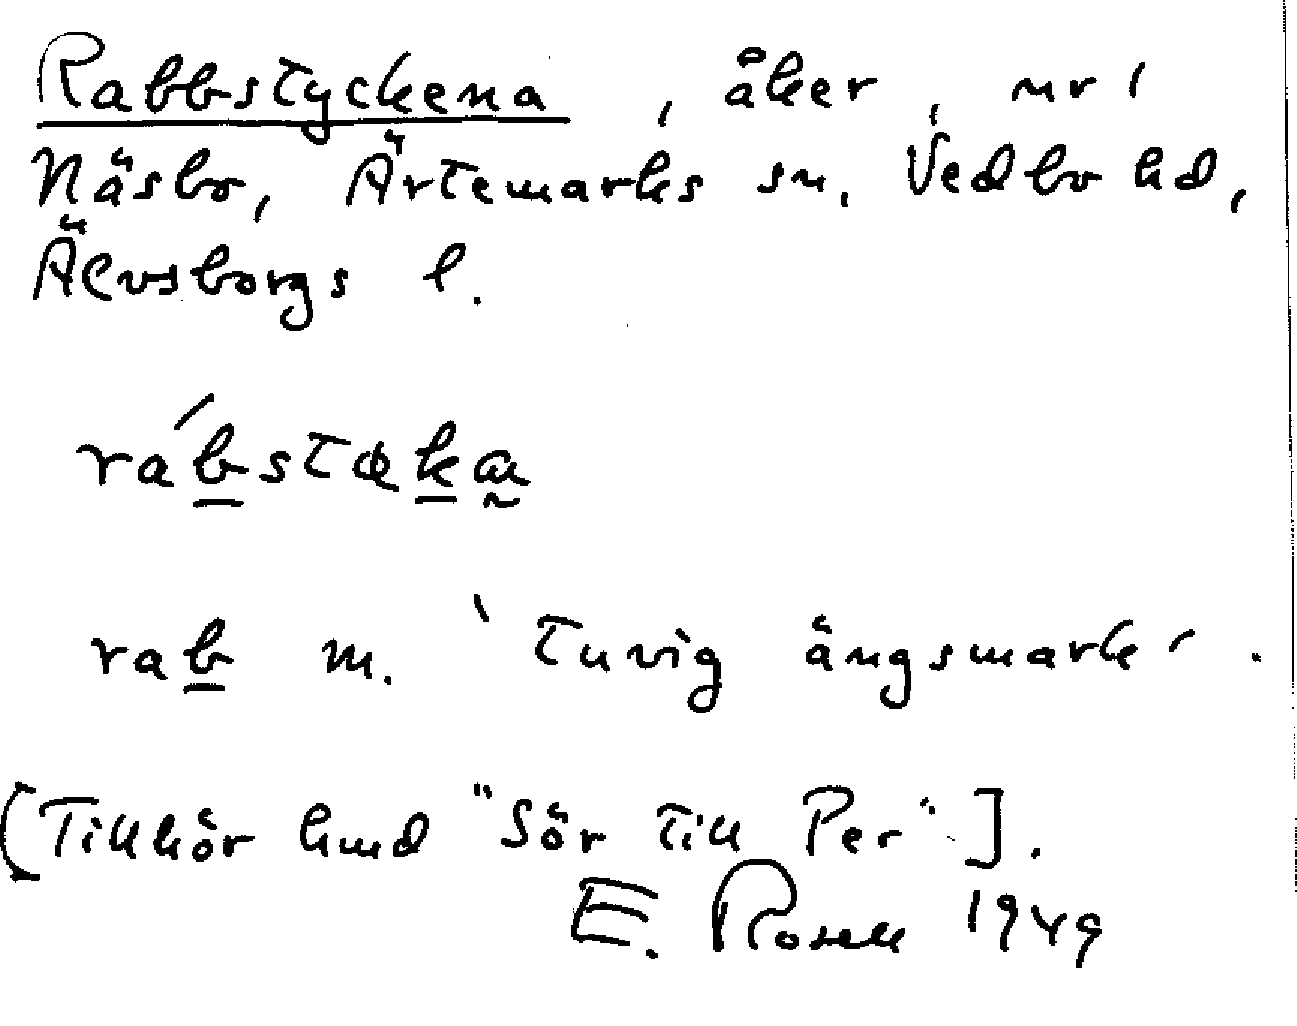 Rabbstyckena, åker, nr 1
Näsbo, Ärtemarks sn. Vedbo hd,
Älvsborgs l.
rábstøka
rab m. 'tuvig ängsmark'.
[Tillhör hmd "Sör till Per"].
E. Rosell 1949